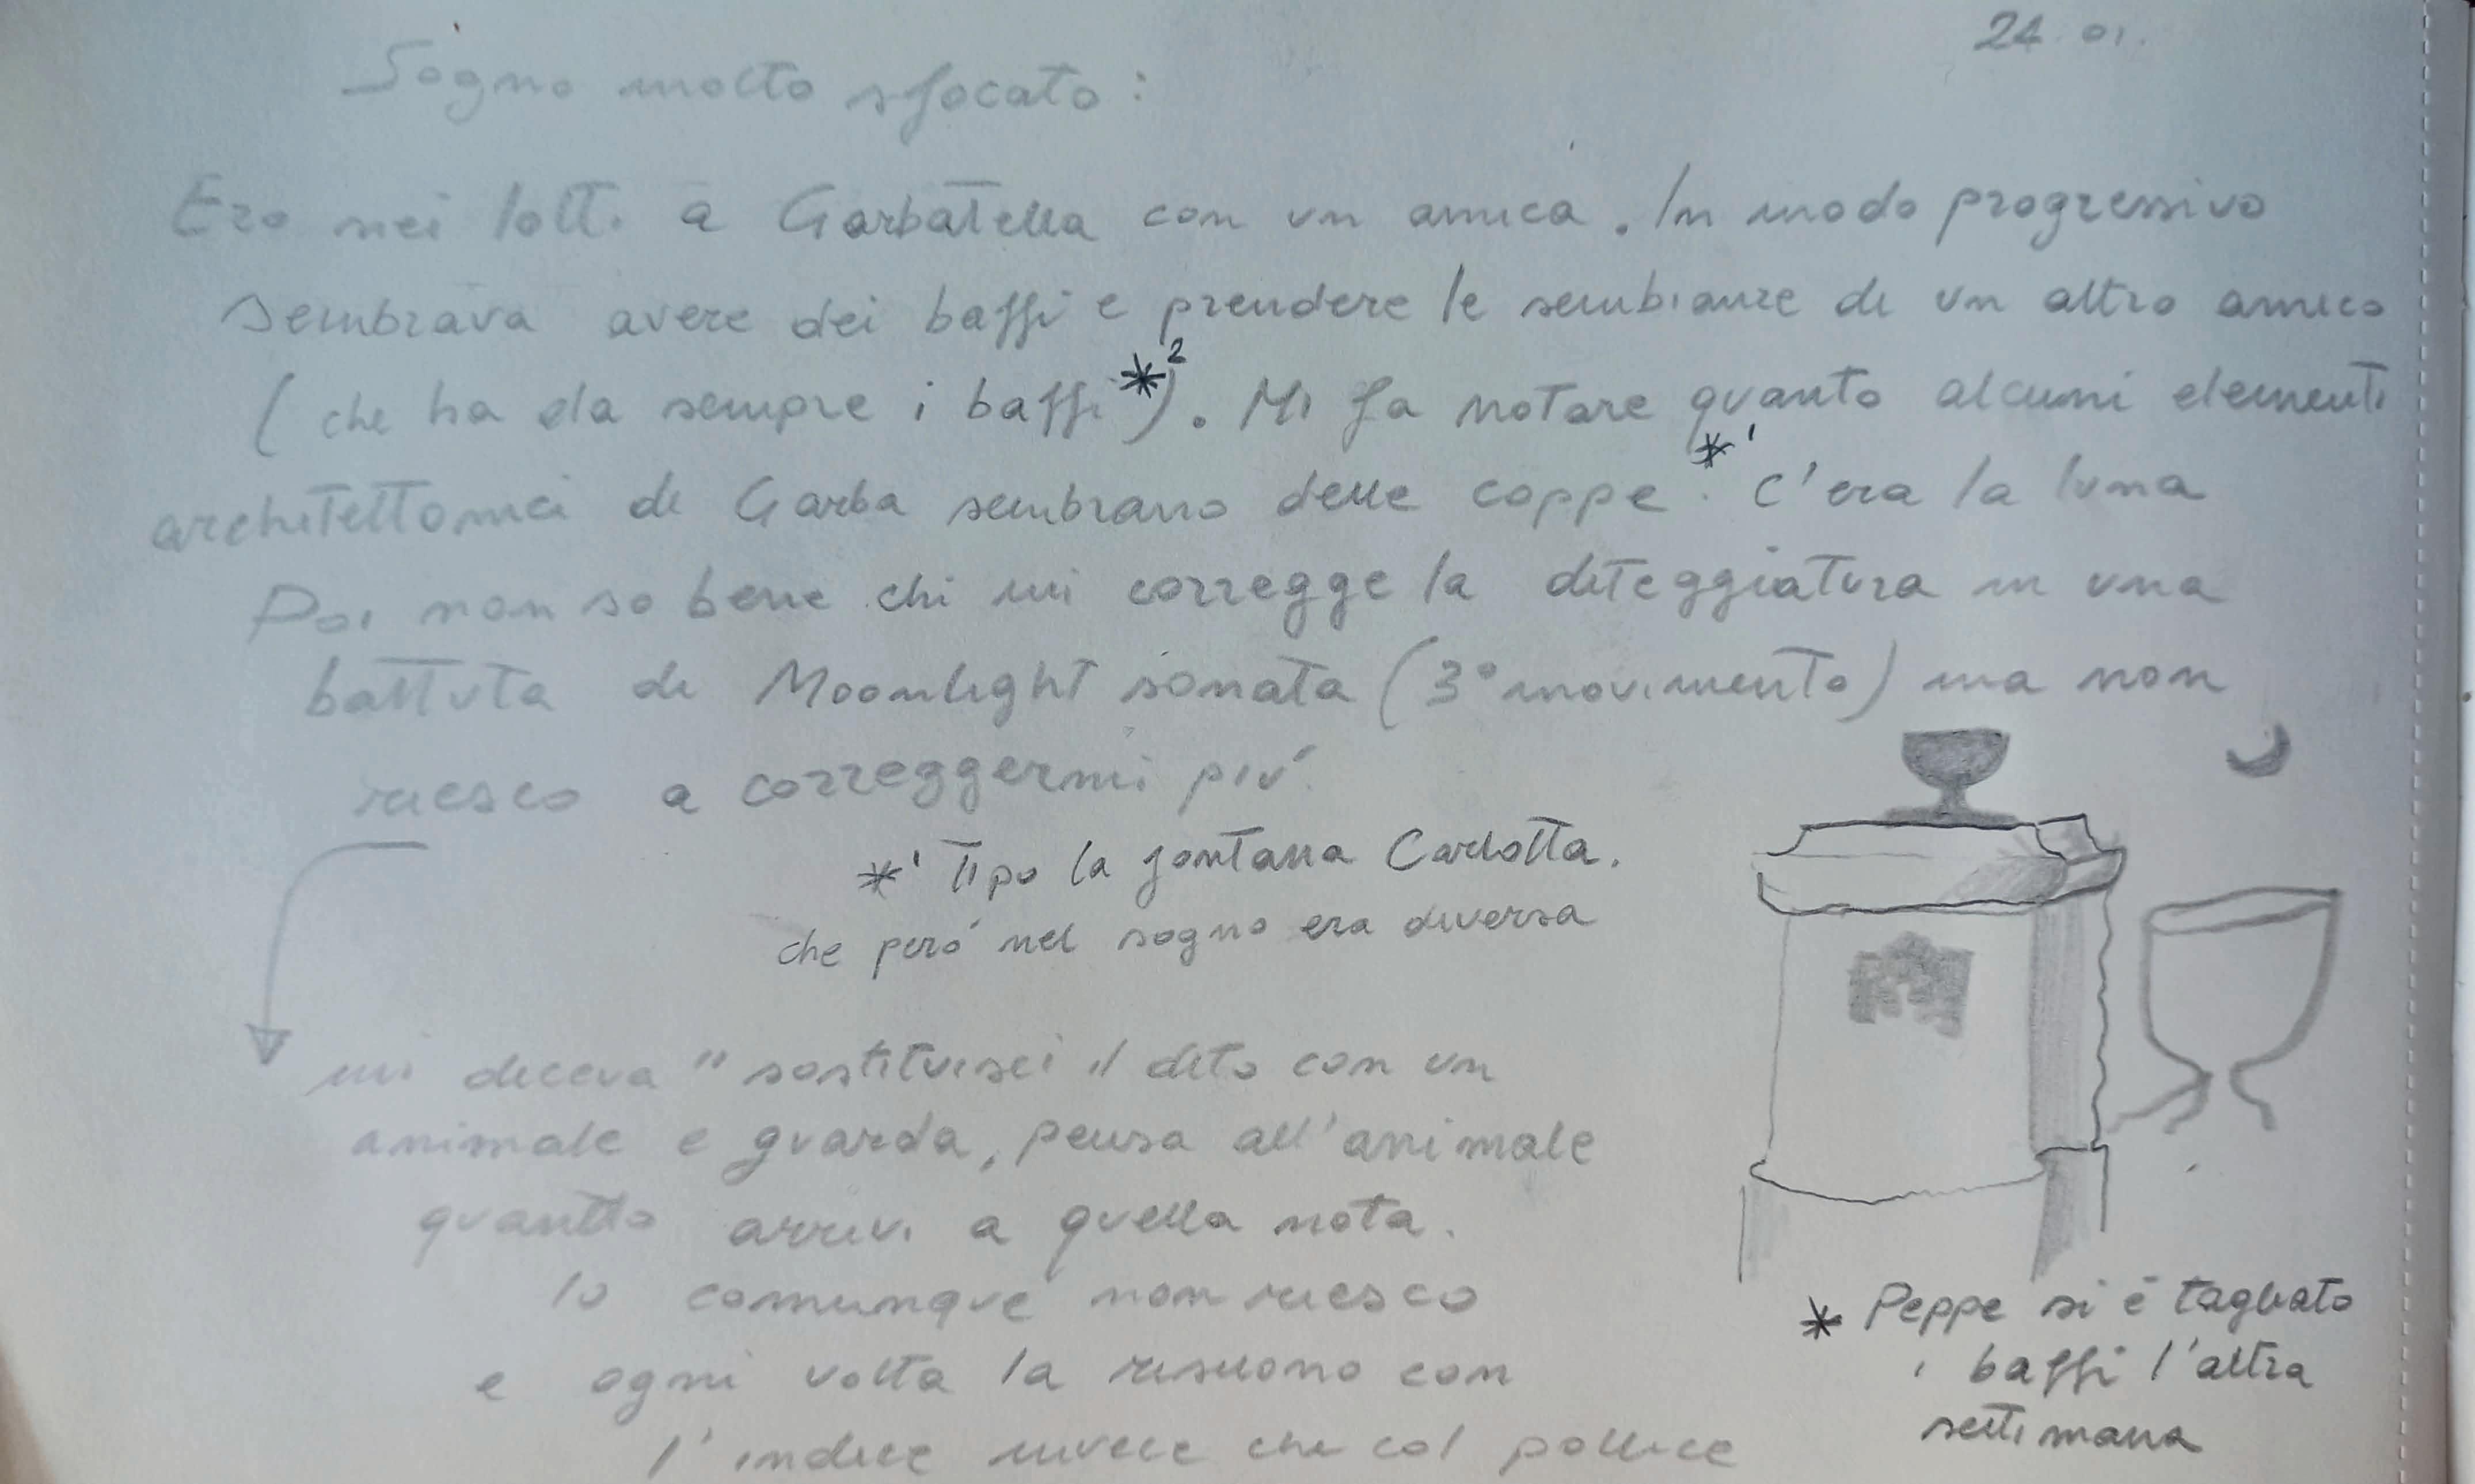 24.01.
Sogno molto sfocato:
Ero nei lotti a Garbatella con un amica. In modo progressivo
sembrava avere dei baffi e prendere le sembianze di un altro amico
(che ha da sempre i baffi*²). Mi fa notare quanto alcuni elementi
architettonici di Garba sembrano delle coppe*¹. C'era la luna
Poi non so bene chi mi corregge la diteggiatura in una
battuta di Moonlight sonata (3° movimento) ma non
riesco a correggermi più
*¹ Tipo la fontana Carlotta.
che però nel sogno era diversa
mi diceva "sostituisci il dito con un
animale e guarda, pensa all'animale
quantto arrivi a quella nota.
Io comunque non riesco
e ogni volta la risuono con
l'indice invece che col pollice
* Peppe si è tagliato
i baffi l'altra
settimana